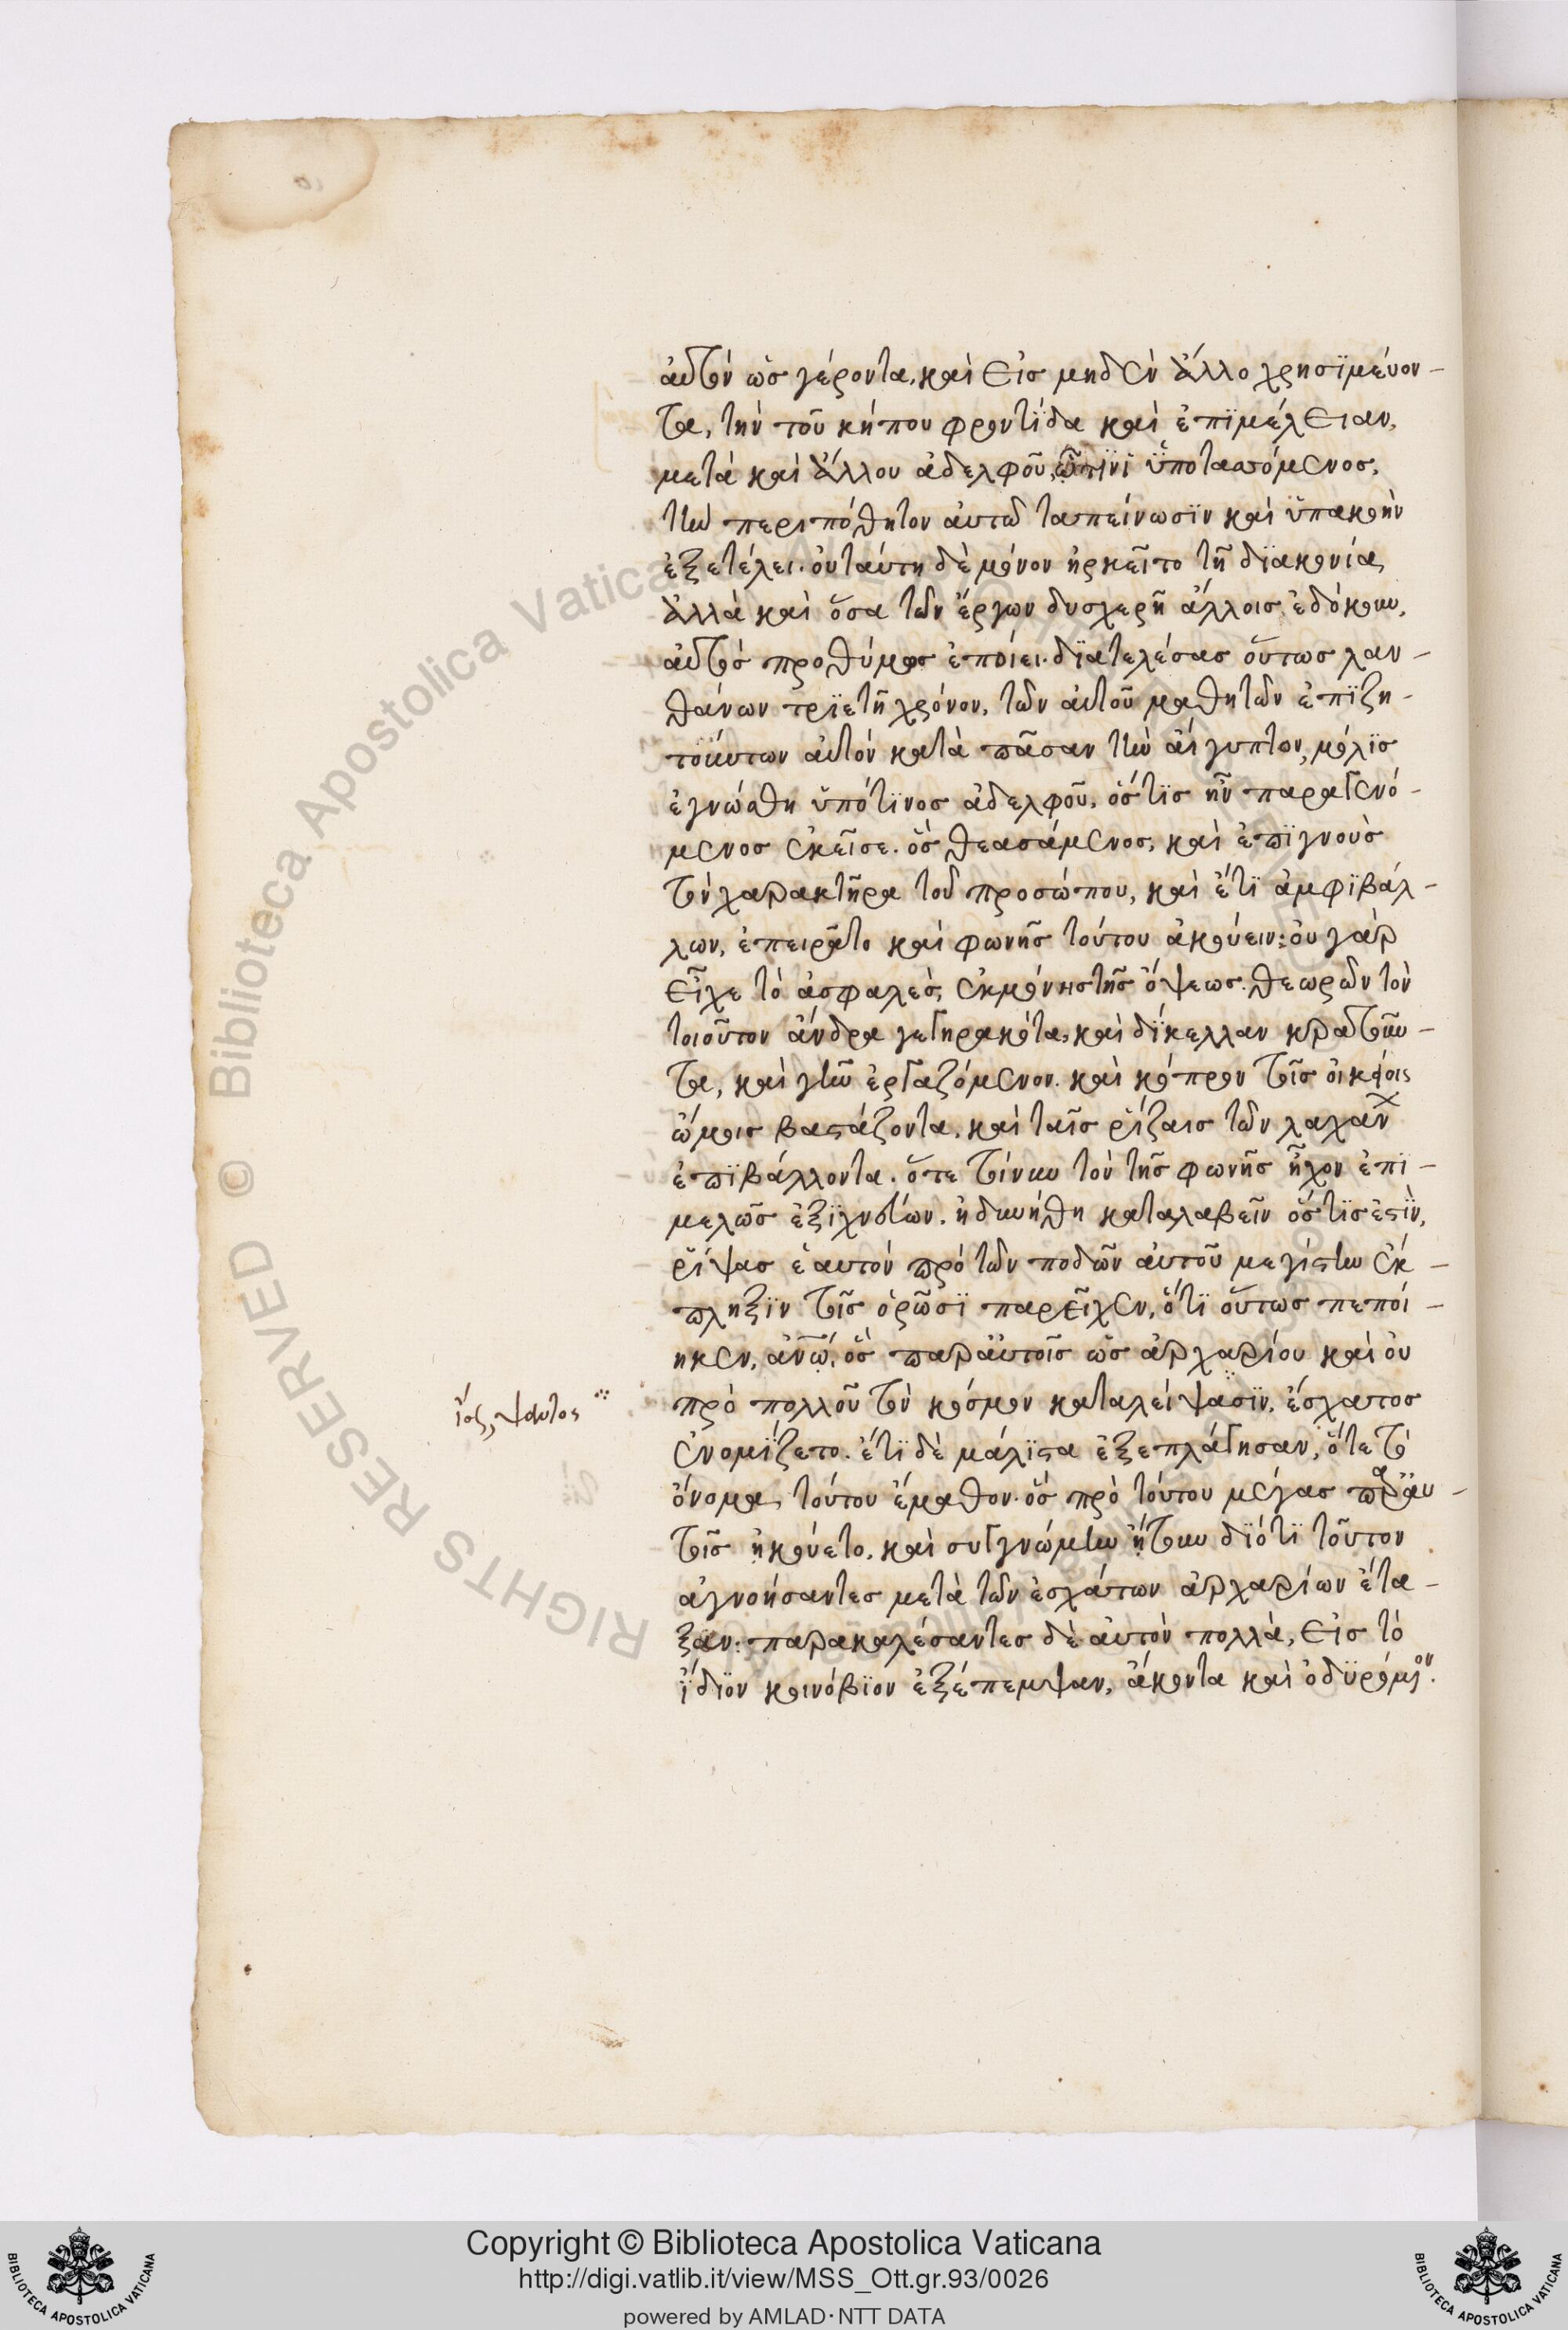 αὐτὸν ὡς γέροντα, καὶ εἰς μηδὲν ἄλλο χρησϊμεύον-
τα, τὴν τοῦ κήπου φροντίδα καὶ ἐπϊμέλειαν,
μετὰ καὶ ἄλλου ἀδελφοῦ, ᾧτϊνϊ ὑποτασσόμενος,
τὴν περιπόθητον αὐτῶ ταπείνωσϊν καὶ ὑπακοὴν
ἐξετέλει. οὐ ταύτη δὲ μόνον ἠρκεῖτο τῆ δϊακονία,
ἀλλὰ καὶ ὅσα τῶν ἔργων δυσχερῆ ἄλλοις ἐδόκουν,
αὐτὸς προθύμως ἐποίει. δϊατελέσας οὕτως λαν-
θάνων τρϊετῆ χρόνον, τῶν αὐτοῦ μαθητῶν ἐπϊζη-
τούντων αὐτὸν κατὰ πᾶσαν τὴν αἴγυπτον, μόλϊς
ἐγνώσθη ὑπό τϊνος ἀδελφοῦ, ὅστϊς ἦν παραγενό-
μενος ἐκεῖσε. ὃς θεασάμενος, καὶ ἐπϊγνοὺς
τὸν χαρακτῆρα τοῦ προσώπου, καὶ ἔτϊ ἀμφϊβάλ-
λων, ἐπειρᾶτο καὶ φωνῆς τούτου ἀκούειν: οὐ γὰρ
εἶχε τὸ ἀσφαλὲς, ἐκ μόνης τῆς ὄψεως. θεωρῶν τὸν
τοιοῦτον ἄνδρα γεγηρακότα, καὶ δίκελλαν κρατοῦν-
τα, καὶ γῆν ἐργαζόμενον. καὶ κόπρον τοῖς οἰκείοις
ὤμοις βαστάζοντα, καὶ ταῖς ῥίζαις τῶν λαχάν
ἐπϊβάλλοντα. ὅτε τοίνυν τὸν τῆς φωνῆς ἦχον ἐπϊ-
μελῶς ἐξϊχνεύων, ἠδυνήθη καταλαβεῖν ὅστϊς ἐστὶν,
ῥίψας ἑαυτὸν πρὸ τῶν ποδῶν αὐτοῦ μεγίστην ἔκ-
πληξϊν τοῖς ὁρῶσϊ παρεῖχεν, ὅτϊ οὕτως πεποί-
ηκεν, ἀνω, ὃς παρ αὐτοῖς ὡς ἀρχαρίου καὶ οὐ
πρὸ πολλοῦ τὸν κόσμον καταλείψασϊν, ἔσχατος
ἐνομίζετο. ἔτϊ δὲ μάλϊστα ἐξεπλάγησαν, ὅτε τὸ
ὄνομα τούτου ἔμαθον. ὃς πρὸ τούτου μέγας παρ αὐ-
τοῖς ἠκούετο, καὶ συγγνώμην ἤτουν δϊότϊ τοῦτον
ἀγνοήσαντες μετὰ τῶν ἐσχάτων ἀρχαρίων ἔτα-
ξαν: παρακαλέσαντες δὲ αὐτὸν πολλὰ, εἰς τὸ
ἴδϊον κοινόβϊον ἐξέπεμψαν, ἄκοντα καὶ ὀδϋρόμον.
Copyright © Biblioteca Apostolica Vaticana
http://digi.vatlib.it/view/MSS_Ott.gr.93/0026
powered by AMLAD·NTT DATA
BIBLIOTECA APOSTOLICA VATICANA
BIBLIOTECA APOSTOLICA VATICANA